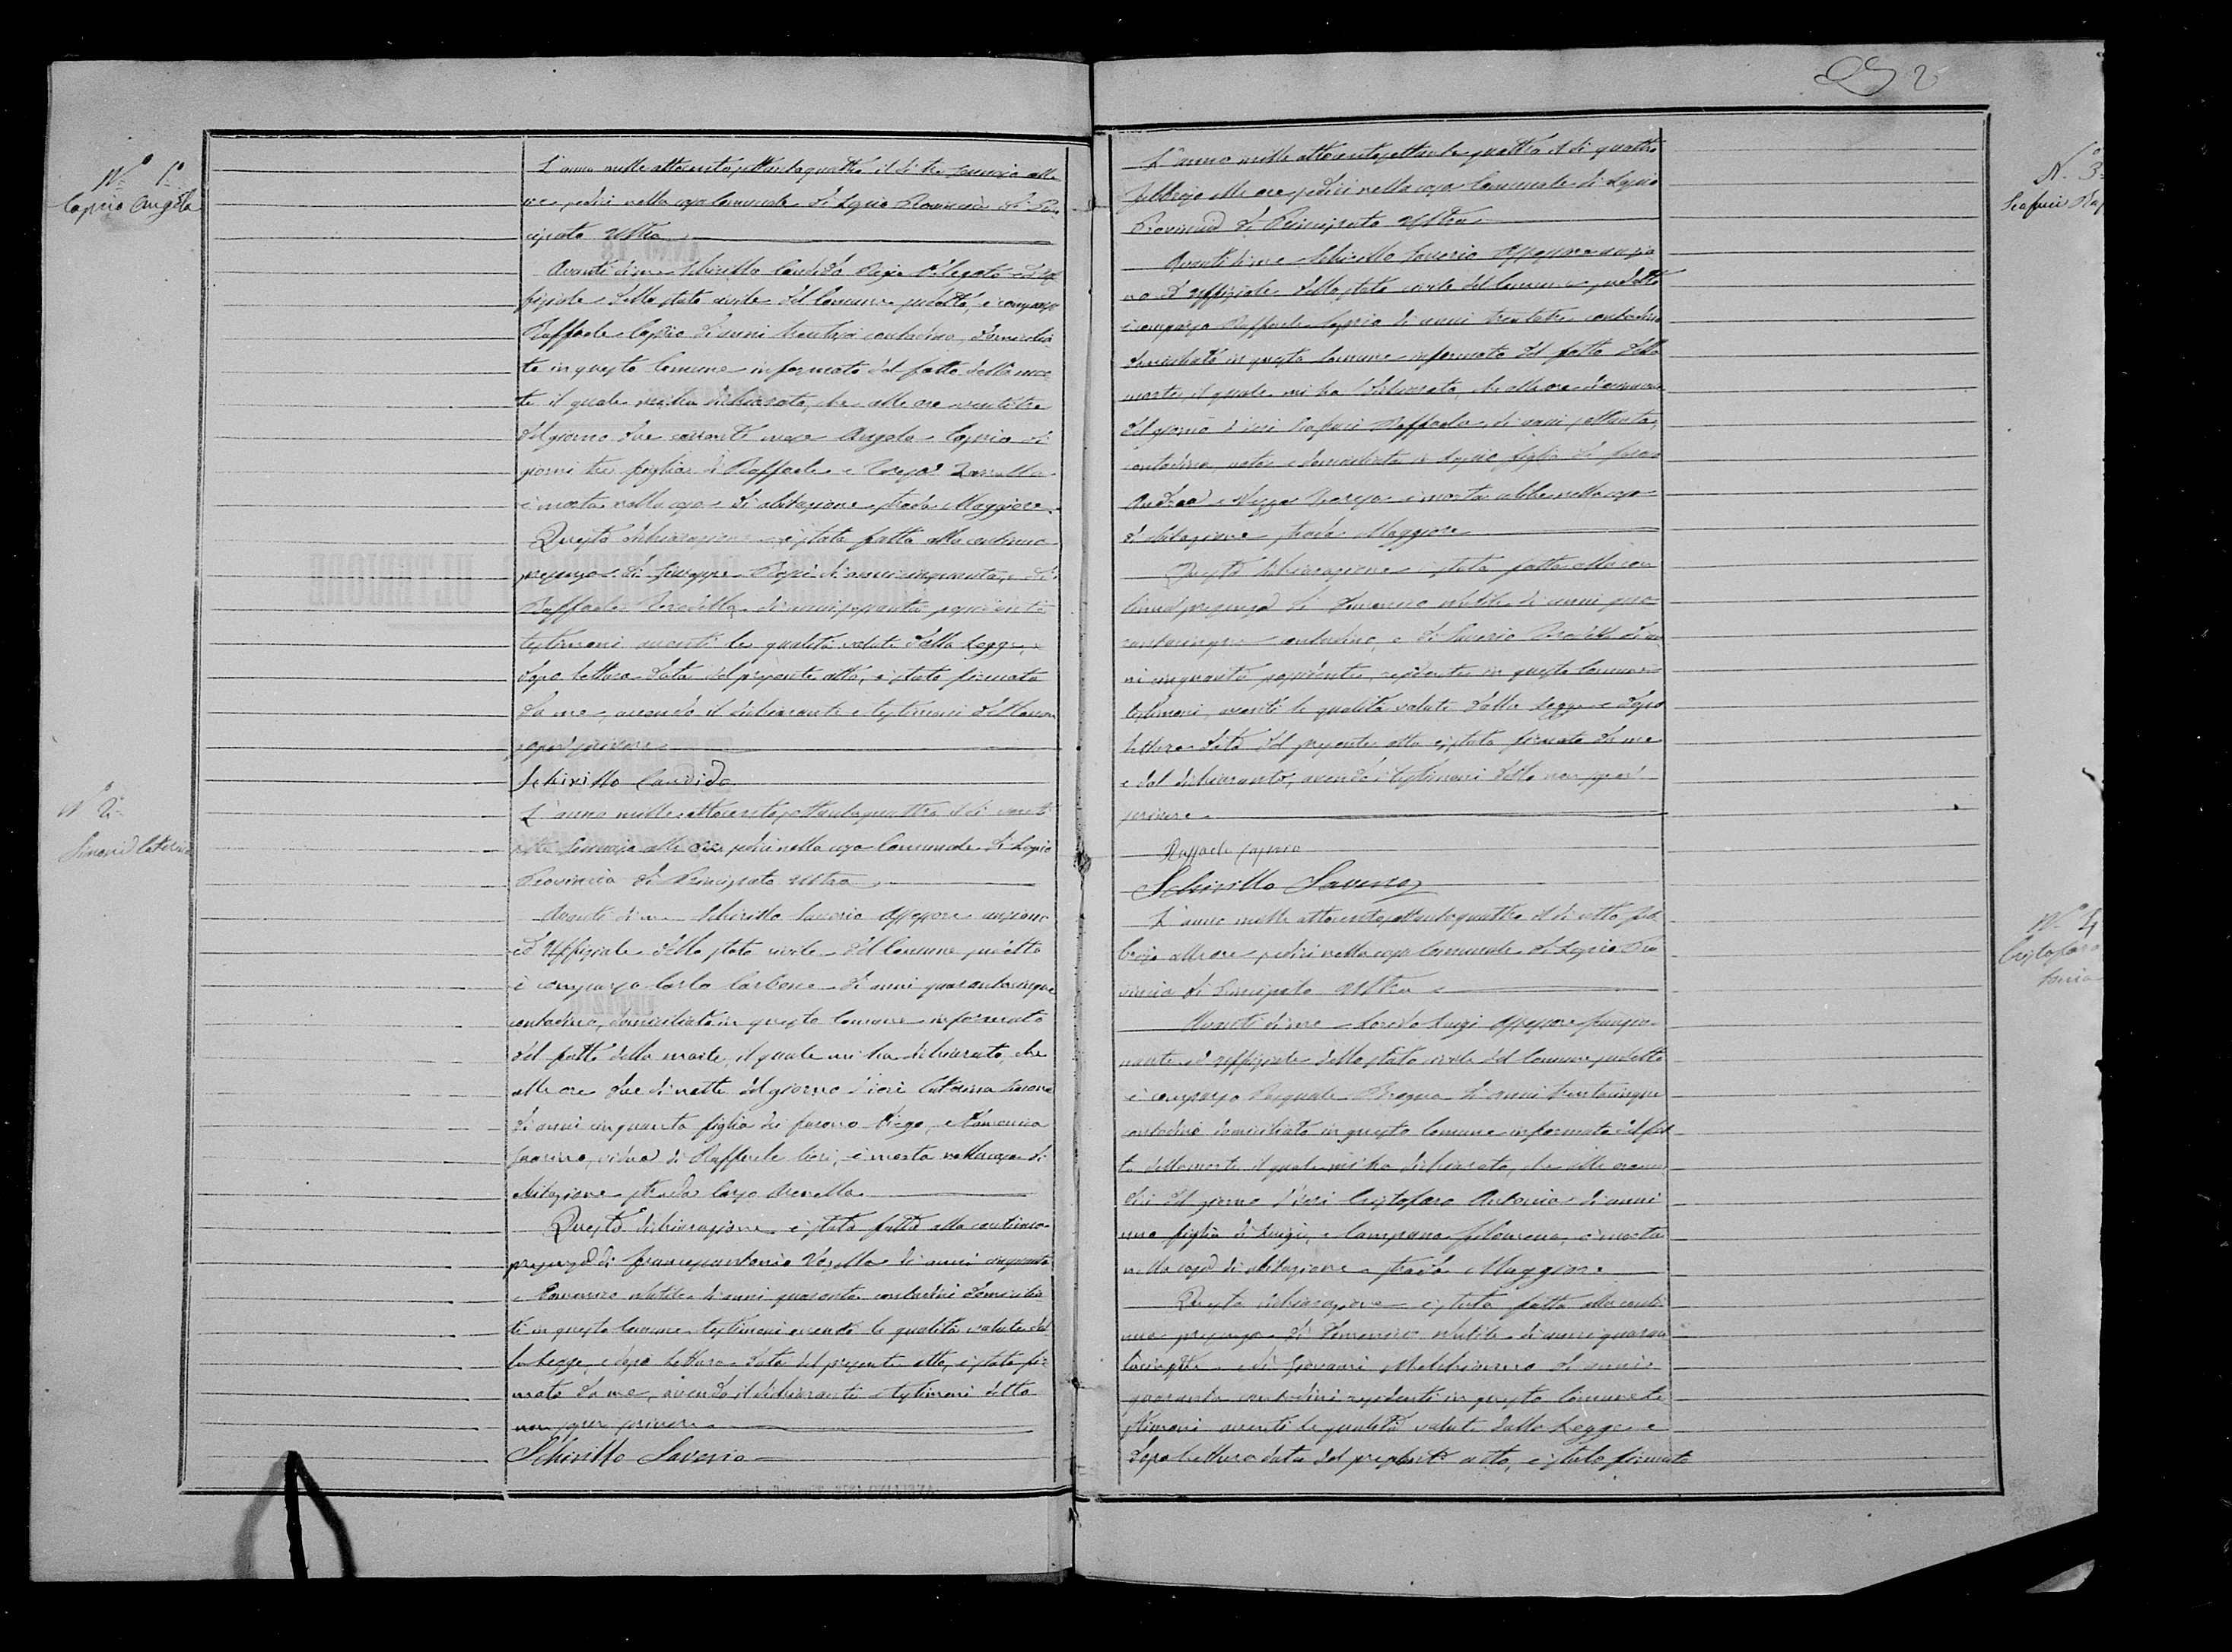 N.º 1º
Caprio Angela
L'anno mille ottocentosettantaquattro il dì tre Gennaio alle
ore sedici nella casa Comunale di Lapio Provincia di Prin
cipato Ultra
Avanti di me Schirillo Candido Regio Delegato ed Uf
fiziale dello stato civile del Comune sudetto, è comparso
Raffaele Caprio di anni trentasei contadino, domicilia
to in questo Comune informato del fatto della mor
te il quale mi ha dichiarato, che alle ore ventitre
del giorno due corrente mese Angela Caprio di
giorni tre figlia di Raffaele e Teresa
è morta nella casa di abitazione strada Maggiore
Questa dichiarazione è stata fatta alla continua
presenza di Giuseppe di anni cinquanta, e di
Raffaele di anni sessanta
testimoni aventi le qualità volute dalla Legge, e
dopo lettura data del presente atto, è stato firmato
da me, avendo il dichiarante e testimoni detto non
saper scrivere
Schirillo Candido
N.º 2.
Simone Caterina
L'anno mille ottocentosettantaquattro il dì venti
sette Gennaio alle ore sedici nella casa Comunale di Lapio
Provincia di Principato Ultra
Avanti di me Schirillo Saverio Assessore anziano
ed Uffiziale dello stato civile del Comune sudetto
è comparso Carlo Carbone di anni quarantacinque
contadino, domiciliato in questo Comune informato
del fatto della morte, il quale mi ha dichiarato, che
alle ore due di notte del giorno d'ieri Caterina Simone
di anni cinquanta figlia dei furono Diego, e Domenica
vedova di Raffaele è morta nella casa di
abitazione strada Largo
Questa dichiarazione è stata fatta alla continua
presenza di Francescantonio di anni cinquanta
e Domenico di anni quaranta contadini domicilia
ti in questo Comune testimoni avendo le qualità volute dal
la Legge, e dopo lettura data del presente atto, è stato fir
mato da me, avendo il dichiarante e testimoni detto
non saper scrivere
Schirillo Saverio
2
N. 3º
L'anno mille ottocentosettantaquattro il dì quattro
Febbraio alle ore sedici nella casa Comunale di Lapio
Provincia di Principato Ultra
Avanti di me Schirillo Saverio Assessore anzia
no ed Uffiziale dello stato civile del Comune sudetto
è comparso Raffaele Caprio di anni trentatre contadino
domiciliato in questo Comune informato del fatto della
morte, il quale mi ha dichiarato, che alle ore
del giorno d'ieri Raffaela di anni settanta,
contadina, nata e domiciliata in Lapio figlia di furono
Andrea e Teresa è morta nella casa
di abitazione strada Maggiore
Questa dichiarazione è stata fatta alla con
tinua presenza di Domenico di anni qua
rantacinque contadino, e di Saverio di an
ni cinquanta residenti in questo Comune
testimoni, aventi le qualità volute dalla Legge e dopo
lettura data del presente atto è stato firmato da me
e dal dichiarante, avendo i testimoni detto non saper
scrivere
Raffaele Caprio
Schirillo Saverio
N. 4
Cristofaro
L'anno mille ottocentosettantaquattro il dì otto Feb
braio alle ore sedici nella casa Comunale di Lapio Pro
vincia di Principato Ultra
Avanti di me Luigi Assessore funzio
nante ed uffiziale dello stato civile del Comune sudetto
è comparso Pasquale di anni trentacinque
contadino domiciliato in questo Comune informato del fat
to della morte il quale mi ha dichiarato, che alle ore
del giorno d'ieri Cristofaro Antonia di anni
uno figlia di Luigi, e Campana Filomena, è morta
nella casa di abitazione strada Maggiore
Questa dichiarazione è stata fatta alla conti
nua presenza di Domenico di anni quaran
tacinque e di Giovanni di anni
quaranta contadini residenti in questo Comune te
stimoni aventi le qualità volute dalla Legge e
dopo lettura data del presente atto, è stato firmato